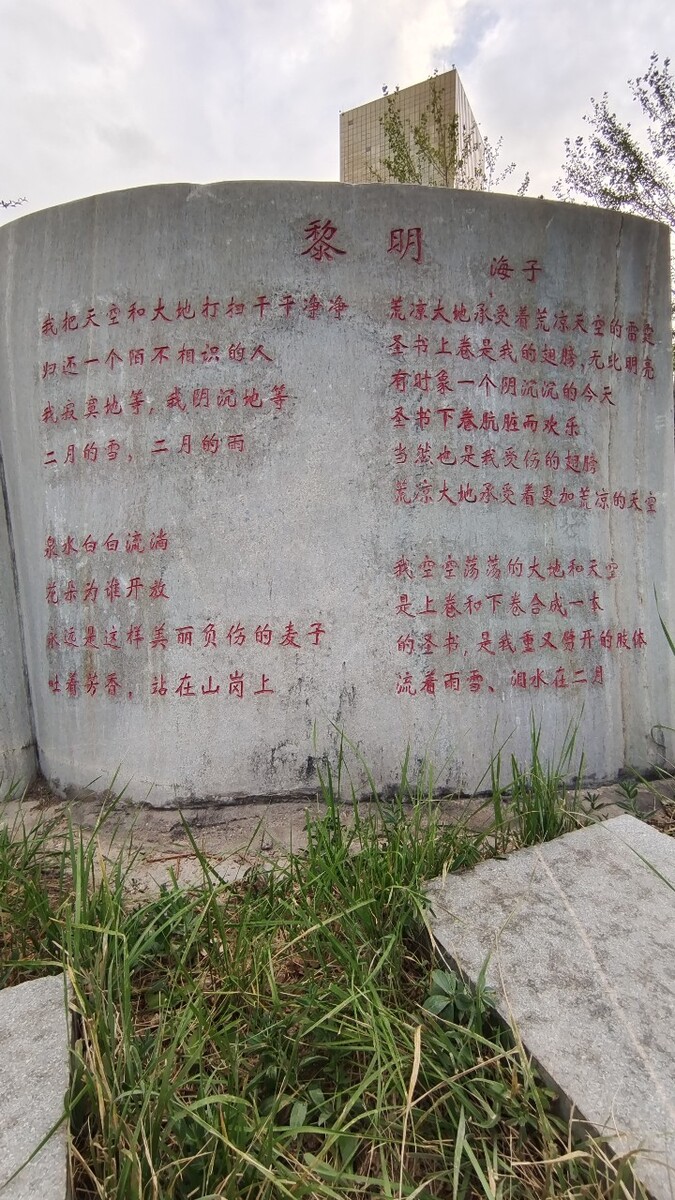 黎明
海子
我把天空和大地打扫干干净净
归还一个陌不相识的人
我寂寞地等，我阴沉地等
二月的雪，二月的雨
泉水白白流淌
花朵为谁开放
永远是这样美丽负伤的麦子
吐着芳香，站在山岗上
荒凉大地承受着荒凉天空的雷霆
圣书上卷是我的翅膀，无比明亮
有时象一个阴沉沉的今天
圣书下卷肮脏而欢乐
当然也是我受伤的翅膀
荒凉大地承受着更加荒凉的天空
我空空荡荡的大地和天空
是上卷和下卷合成一本
的圣书，是我重又劈开的肢体
流着雨雪、泪水在二月